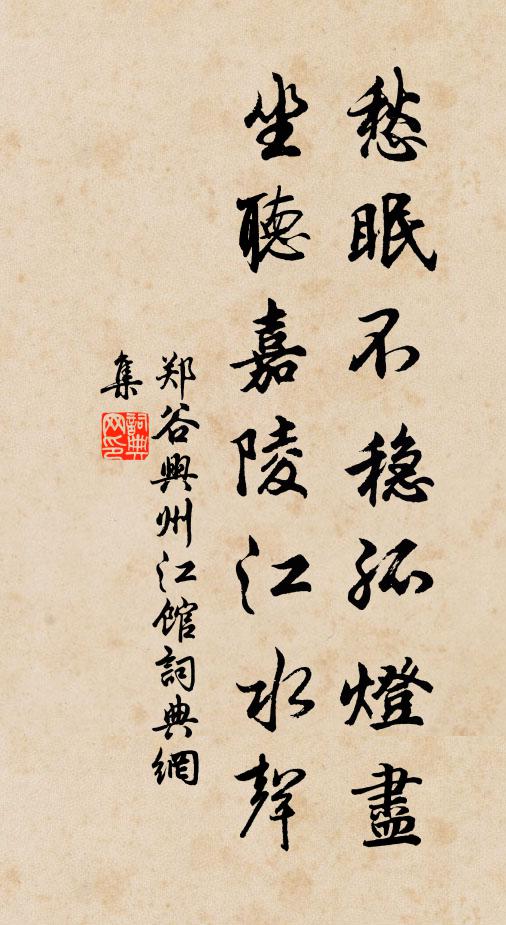 愁眠不稳孤燈盡
坐聽嘉陵江水聲
郑谷興州江館詞典網
集
詞典网印